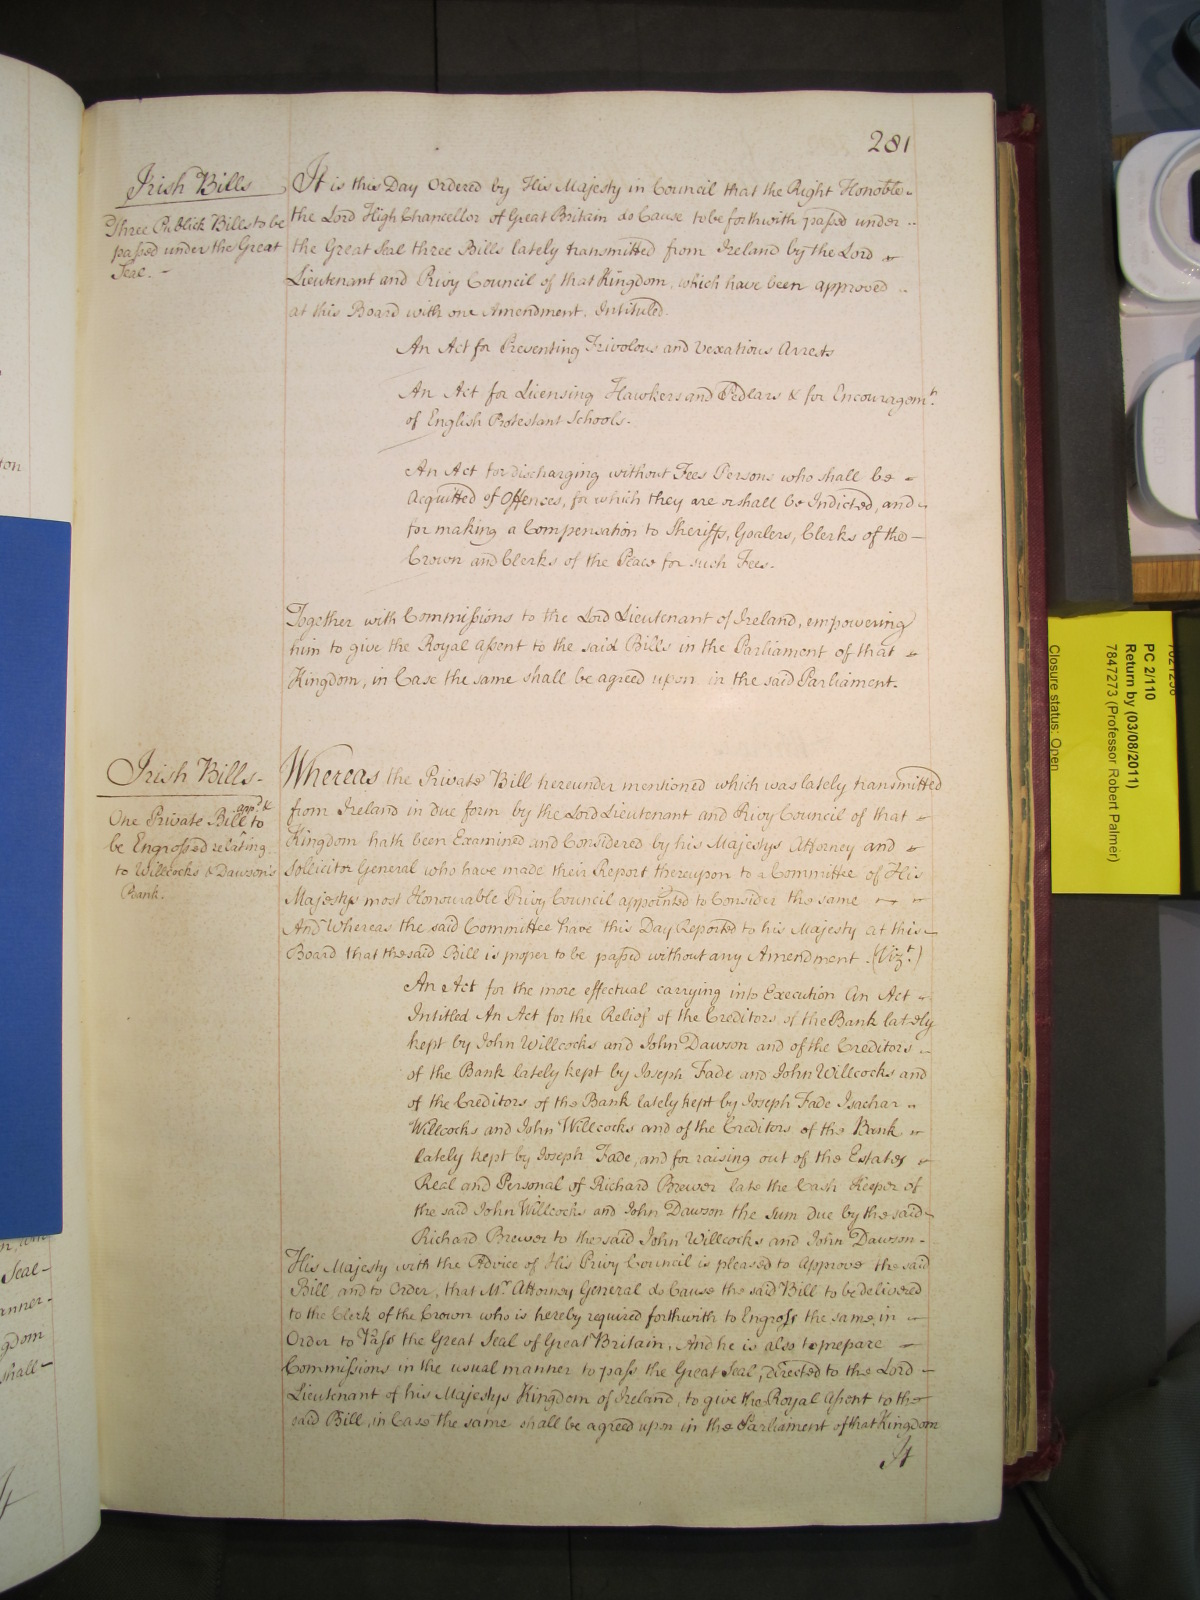 281
Irish Bills
Three Publick Bills to be
passed under the Great
Seal. -
It is this Day Ordered by His Majesty in Council that the Right Honoble
the Lord High Chancellor of Great Britain do Cause to be forthwith passed under
the Great Seal three Bills lately transmitted from Ireland by the Lord
Lieutenant and Privy Council of that Kingdom, which have been approved
at this Board with one Amendment. Intituled.
An Act for Preventing Frivolous and vexatious Arrests
An Act for Licensing Hawkers and Pedlars & for Encouragemt.
of English Protestant Schools.
An Act for discharging without Fees Persons who shall be
Acquitted of Offences, for which they are or shall be Indicted, and
for making a Compensation to Sheriffs, Goalers, Clerks of the
Crown and Clerks of the Peace for such Fees.
Together with Commissions to the Lord Lieutenant of Ireland, empowering
him to give the Royal Assent to the said Bills in the Parliament of that
Kingdom, in Case the same shall be agreed upon in the said Parliament.
Irish Bills-
One Private Bill appd. & to
be Engrossed relating
to Willcocks & Dawson's
Bank.
Whereas the Private Bill hereunder mentioned which was lately transmitted
from Ireland in due form by the Lord Lieutenant and Privy Council of that
Kingdom hath been Examined and Considered by his Majestys Attorney and
Sollicitor General who have made their Report thereupon to a Committee of His
Majestys most Honourable Privy Council appointed to Consider the same
And Whereas the said Committee have this Day Reported to his Majesty at this
Board that the said Bill is proper to be passed without any Amendment. (Vizt.)
An Act for the more effectual carrying into Execution an Act
Intitled An Act for the Relief of the Creditors of the Bank lately
kept by John Willcocks and John Dawson and of the Creditors
of the Bank lately kept by Joseph Fade and John Willcocks and
of the Creditors of the Bank lately kept by Joseph Fade Isachar
Willcocks and John Willcocks and of the Creditors of the Bank
lately kept by Joseph Fade, and for raising out of the Estates
Real and Personal of Richard Brewer late the Cash Keeper of
the said John Willcocks and John Dawson the Sum due by the said
Richard Brewer to the said John Willcocks and John Dawson-
His Majesty with the Advice of His Privy Council is pleased to Approve the said
Bill and to Order, that Mr. Attorney General do Cause the said Bill to be delivered
to the Clerk of the Crown who is hereby required forthwith to Engross the same in
Order to Pass the Great Seal of Great Britain, And he is also to prepare
Commissions in the usual manner to pass the Great Seal, directed to the Lord
Lieutenant of his Majestys Kingdom of Ireland, to give the Royal Assent to the
said Bill, in Case the same shall be agreed upon in the Parliament of that Kingdom
It
PC 2/110
Return by (03/08/2011)
7847273 (Professor Robert Palmer)
Closure status: Open
ton
Seal-
anner-
gdom
shall-